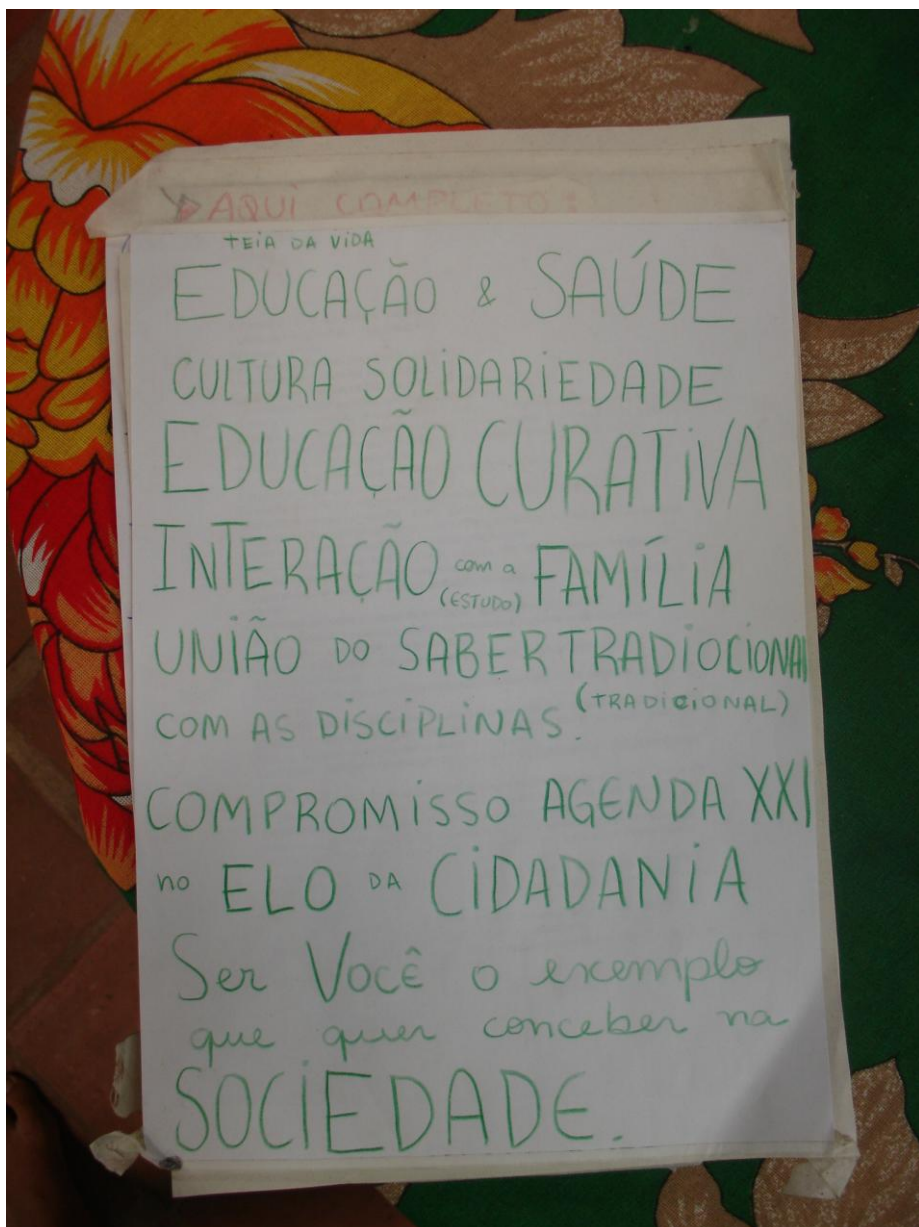 AQUI COMPLETO:
TEIA DA VIDA
EDUCAÇÃO & SAÚDE
CULTURA SOLIDARIEDADE
EDUCAÇÃO CURATIVA
INTERAÇÃO com a (ESTUDO) FAMÍLIA
UNIÃO DO SABER TRADIOCIONAL
COM AS DISCIPLINAS. (TRADICIONAL)
COMPROMISSO AGENDA XXI
no ELO DA CIDADANIA
Ser Você o exemplo
que quer conceber na
SOCIEDADE.